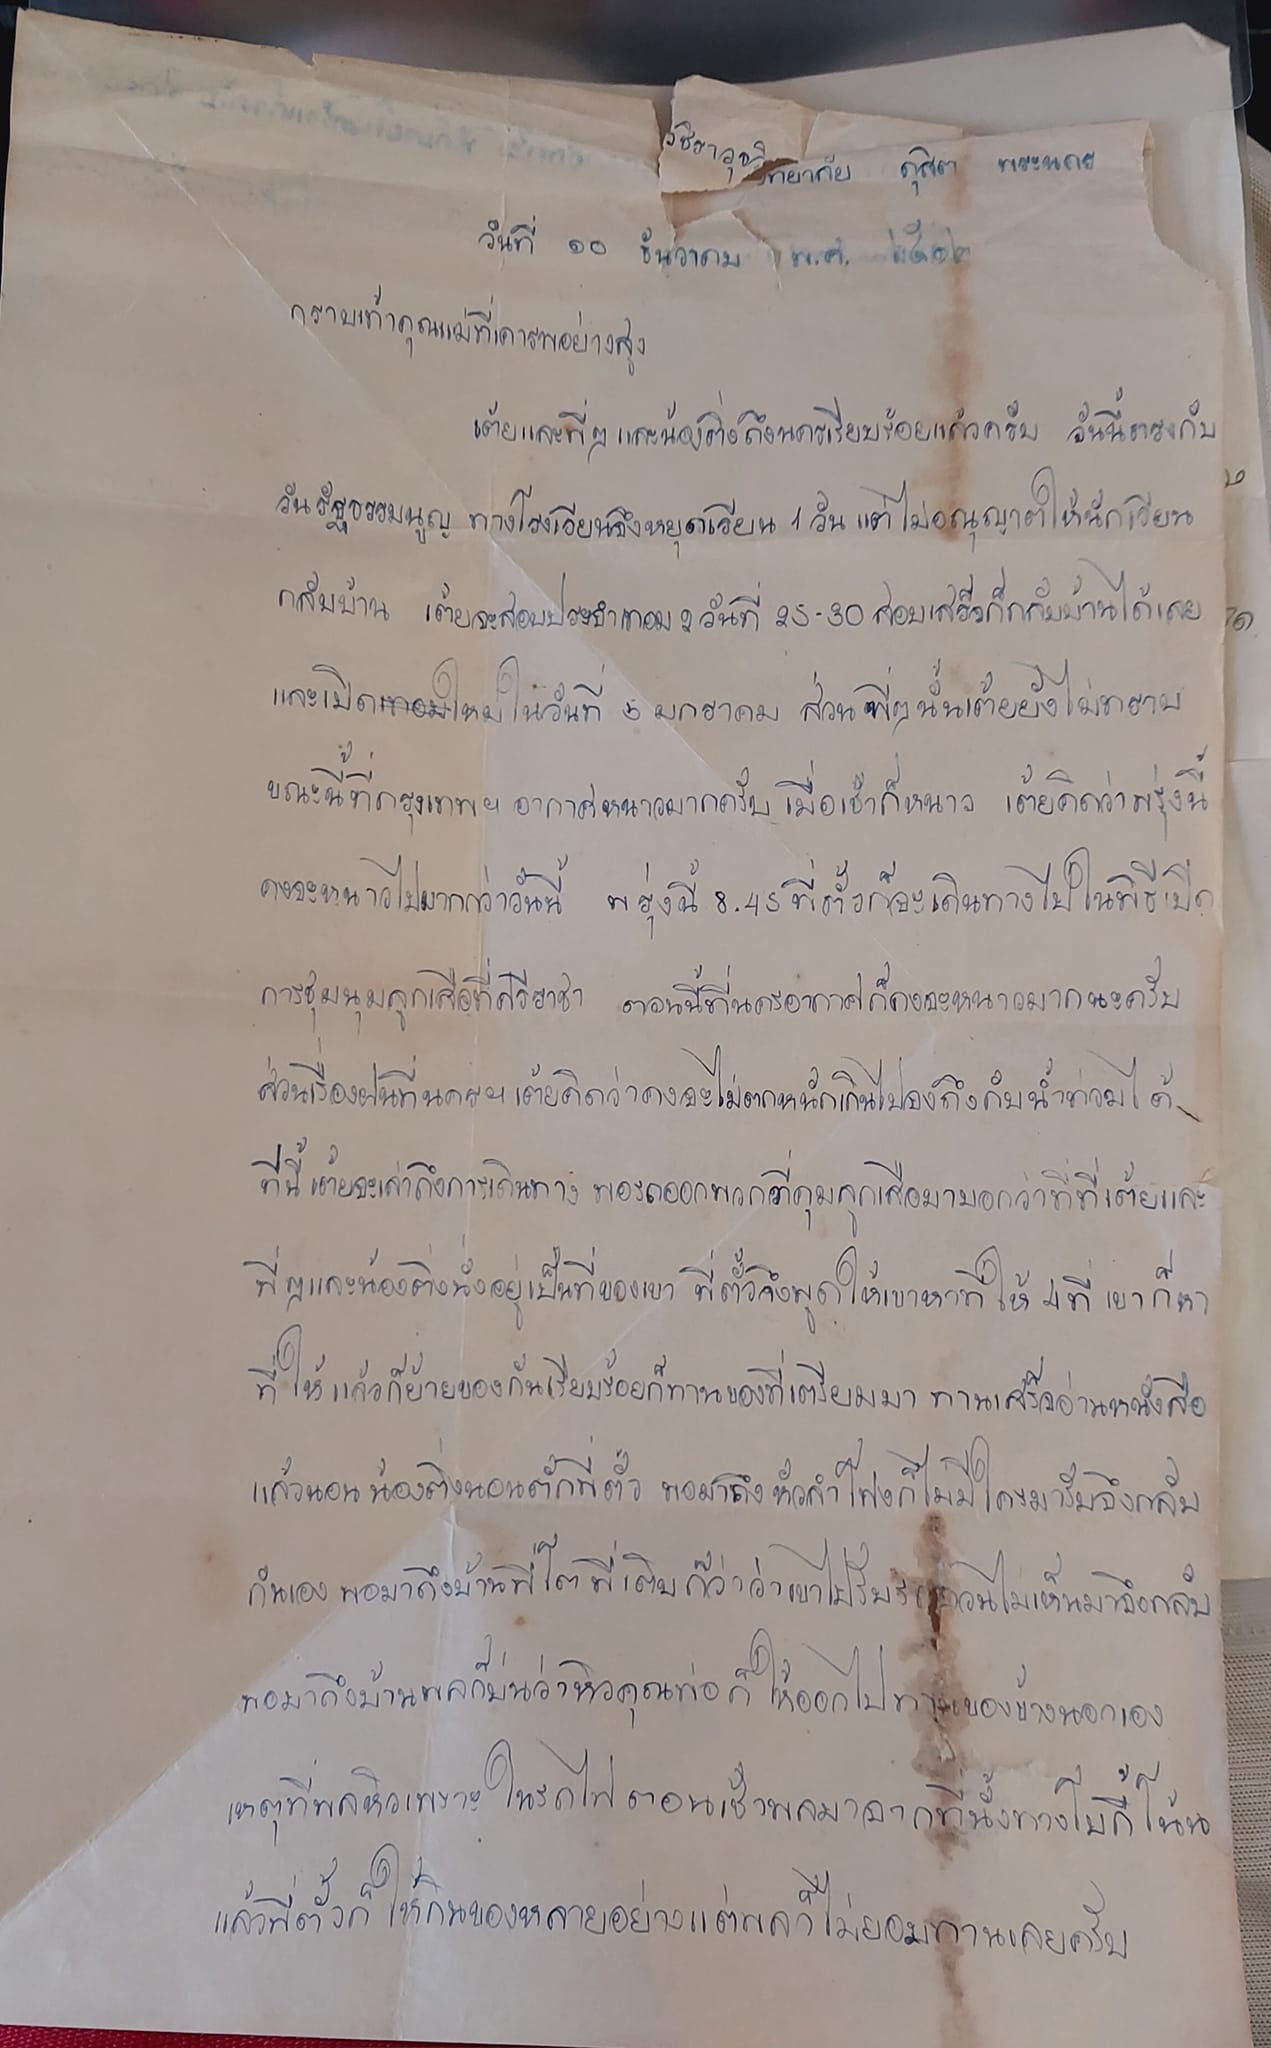 วชิราวุธวิทยาลัย ดุสิต พระนคร
วันที่ ๑๐ ธันวาคม พ.ศ.
กราบเท้าคุณแม่ที่เคารพอย่างสูง
เต้ยและพี่ๆ และน้องติ่งถึงนครเรียบร้อยแล้วครับ วันนี้ตรงกับ
วันรัฐธรรมนูญ ทางโรงเรียนจึงหยุดเรียน 1 วัน แต่ไม่อณุญาตให้นักเรียน
กลับบ้าน เต้ยจะสอบประจำเทอม 2 วันที่ 25-30 สอบเสร็จก็กลับบ้านได้เลย
และเปิดเทอมใหม่ในวันที่ 5 มกราคม ส่วนพี่ๆ นั้นเต้ยยังไม่ทราบ
ขณะนี้ที่กรุงเทพฯ อากาศหนาวมากครับ เมื่อเช้าก็หนาว เต้ยคิดว่าพรุ่งนี้
คงจะหนาวไปมากกว่าวันนี้ พรุ่งนี้ 8.45 พี่ตั้วก็จะเดินทางไปในพิธีเปิด
การชุมนุมลูกเสือที่ศรีราชา ตอนนี้ที่นครอากาศก็คงจะหนาวมากนะครับ
ส่วนเรื่องฝนที่นครฯ เต้ยคิดว่าคงจะไม่ตกหนักเกินไปจนถึงกับน้ำท่วมได้
ที่นี้เต้ยจะเล่าถึงการเดินทาง พอรถออกพวกที่คุมลูกเสือมาบอกว่าที่ที่เต้ยและ
พี่ๆ และน้องติ่งนั่งอยู่เป็นที่ของเขา พี่ตั้วจึงพูดให้เขาหาที่ให้ 4 ที่ เขาก็หา
ที่ให้ แล้วก็ย้ายของกันเรียบร้อยก็ทานของที่เตรียมมา ทานเสร็จอ่านหนังสือ
แล้วนอน น้องติ่งนอนตักพี่ตั้ว พอมาถึงหัวลำโพงก็ไม่มีใครมารับจึงกลับ
กันเอง พอมาถึงบ้านพี่โตพี่เติบก็ว่าว่าเขาไปรับรถด่วนไม่เห็นมาจึงกลับ
พอมาถึงบ้านพลก็บ่นว่าหิวคุณพ่อก็ให้ออกไปทานของข้างนอกเอง
เหตุที่พลหิวเพราะในรถไฟตอนเช้าพลมาจากที่นั่งทางโบกี้โน้น
แล้วพี่ตั้วก็ให้กินของหลายอย่างแต่พลก็ไม่ยอมทานเลยครับ